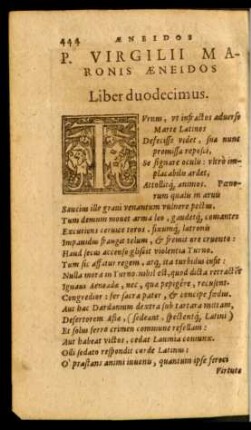 444 ÆNEIDOS
P. VIRGILII MA-
RONIS ÆNEIDOS
Liber duodecimus.
TVrnus, vt infractos aduerso
Marte Latinos
Defecisse videt, sua nunc
promissa reposci,
Se signare oculis: vltrò im-
placabilis ardet,
Attollitq́; animos. Pœno-
rum qualis in aruis
Saucius ille graui venantum vulnere pectus,
Tum demum mouet arma leo, gaudetq́; comantes
Excutiens ceruice toros, fixumq́; latronis
Impauidus frangit telum, & fremit ore cruento:
Haud secus accenso gliscit violentia Turno.
Tum sic affatur regem, atq; ita turbidus infit:
Nulla mora in Turno: nihil est, quod dicta retractẽt
Ignaui Aeneadæ, nec, quæ pepigêre, recusent.
Congredior: fer sacra pater, & concipe fœdus.
Aut hac Dardanium dextra sub tartara mittam,
Desertorem Asiæ, (sedeant, spectentq́; Latini)
Et solus ferro crimen commune refellam:
Aut habeat victos, cedat Lauinia coniunx.
Olli sedato respondit corde Latinus:
O' præstans animi iuuenis, quantum ipse feroci
Virtute